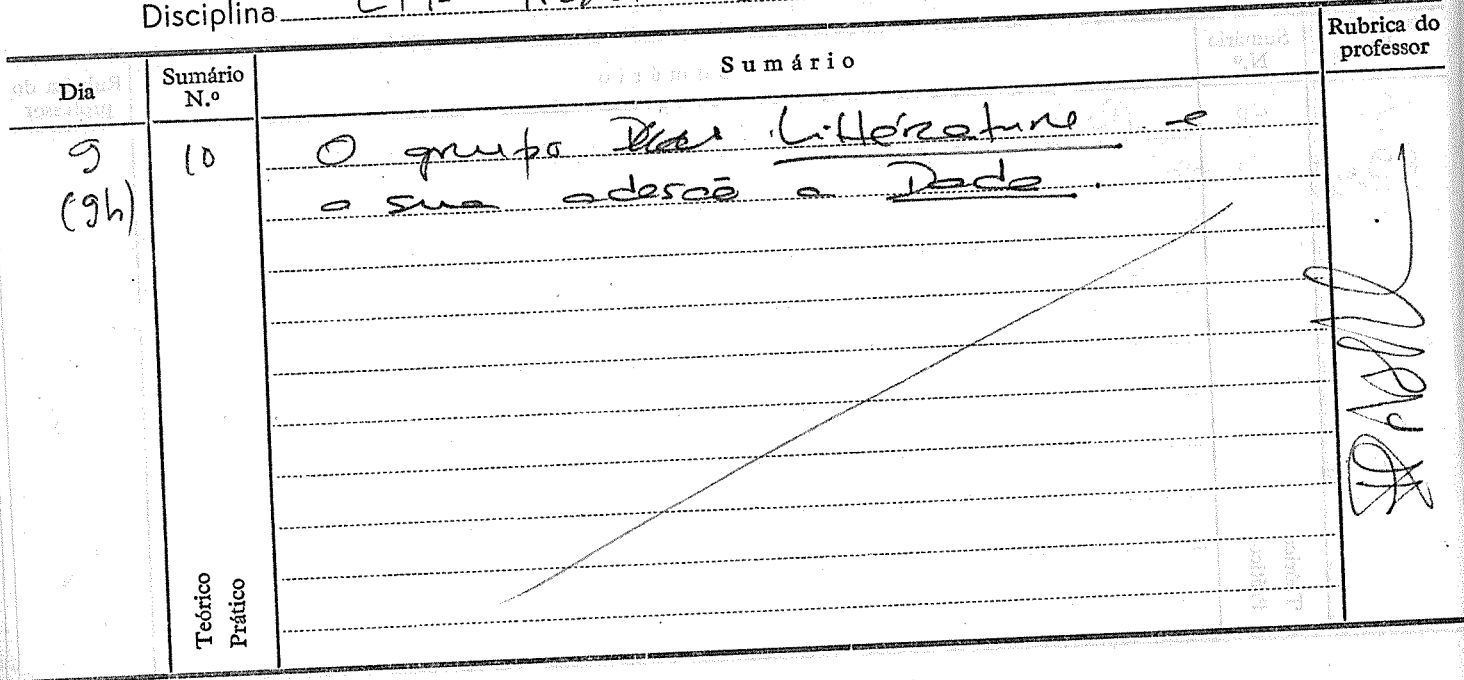 Disciplina
Dia
Sumário N.º
Sumário
Rubrica do professor
9
(9h)
10
O grupo Littérature e
a sua adesão a Dada.
Teórico
Prático